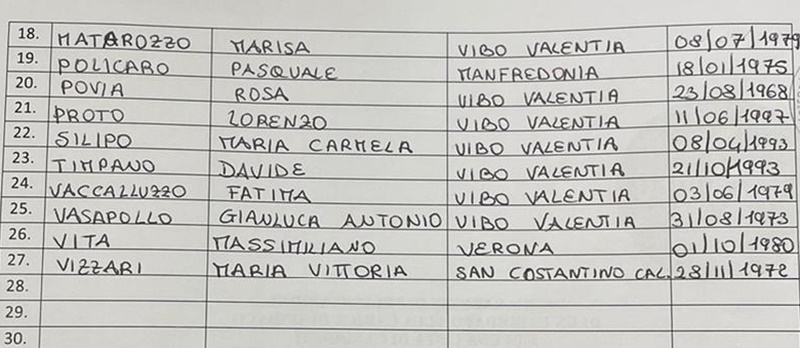 18. MATAROZZO MARISA VIBO VALENTIA 08/07/1979
19. POLICARO PASQUALE MANFREDONIA 18/01/1975
20. POVIA ROSA VIBO VALENTIA 23/08/1968
21. PROTO LORENZO VIBO VALENTIA 11/06/1997
22. SILIPO MARIA CARMELA VIBO VALENTIA 08/04/1993
23. TIMPANO DAVIDE VIBO VALENTIA 21/10/1993
24. VACCALLUZZO FATIMA VIBO VALENTIA 03/06/1979
25. VASAPOLLO GIANLUCA ANTONIO VIBO VALENTIA 31/08/1973
26. VITA MASSIMILIANO VERONA 01/10/1980
27. VIZZARI MARIA VITTORIA SAN COSTANTINO CAL. 28/11/1972
28.
29.
30.